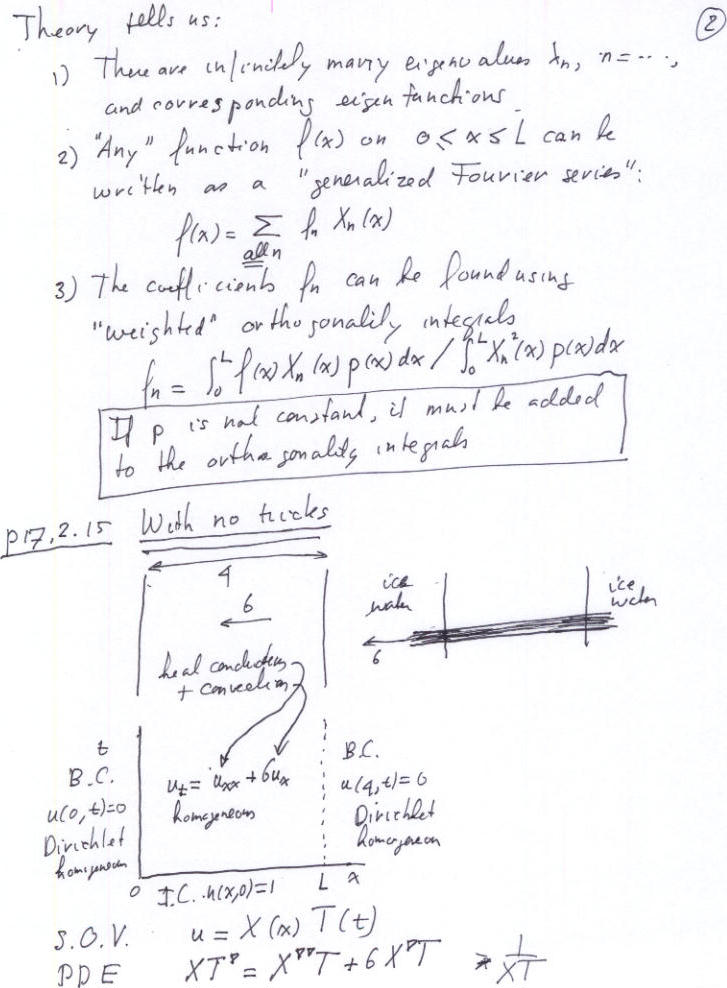 Theory tells us:
②
1) There are infinitely many eigenvalues λn, n = ...,
and corresponding eigen functions.
2) "Any" function f(x) on 0 ≤ x ≤ L can be
written as a "generalized Fourier series":
f(x) = Σ fn Xn(x)
all n
3) The coefficients fn can be found using
"weighted" orthogonality integrals
fn = ∫₀ᴸ f(x) Xn(x) p(x) dx / ∫₀ᴸ Xn²(x) p(x) dx
If p is not constant, it must be added
to the orthogonality integrals
p17, 2.15 With no tricks
4
6
ice water
ice water
6
heat conduction
+ convection
t
B.C.
u(0,t)=0
Dirichlet
homogeneous
ut = uxx + 6ux
homogeneous
B.C.
u(4,t)=0
Dirichlet
homogeneous
0 I.C. u(x,0)=1 L x
S.O.V. u = X(x) T(t)
PDE XT' = X''T + 6X'T * 1/XT